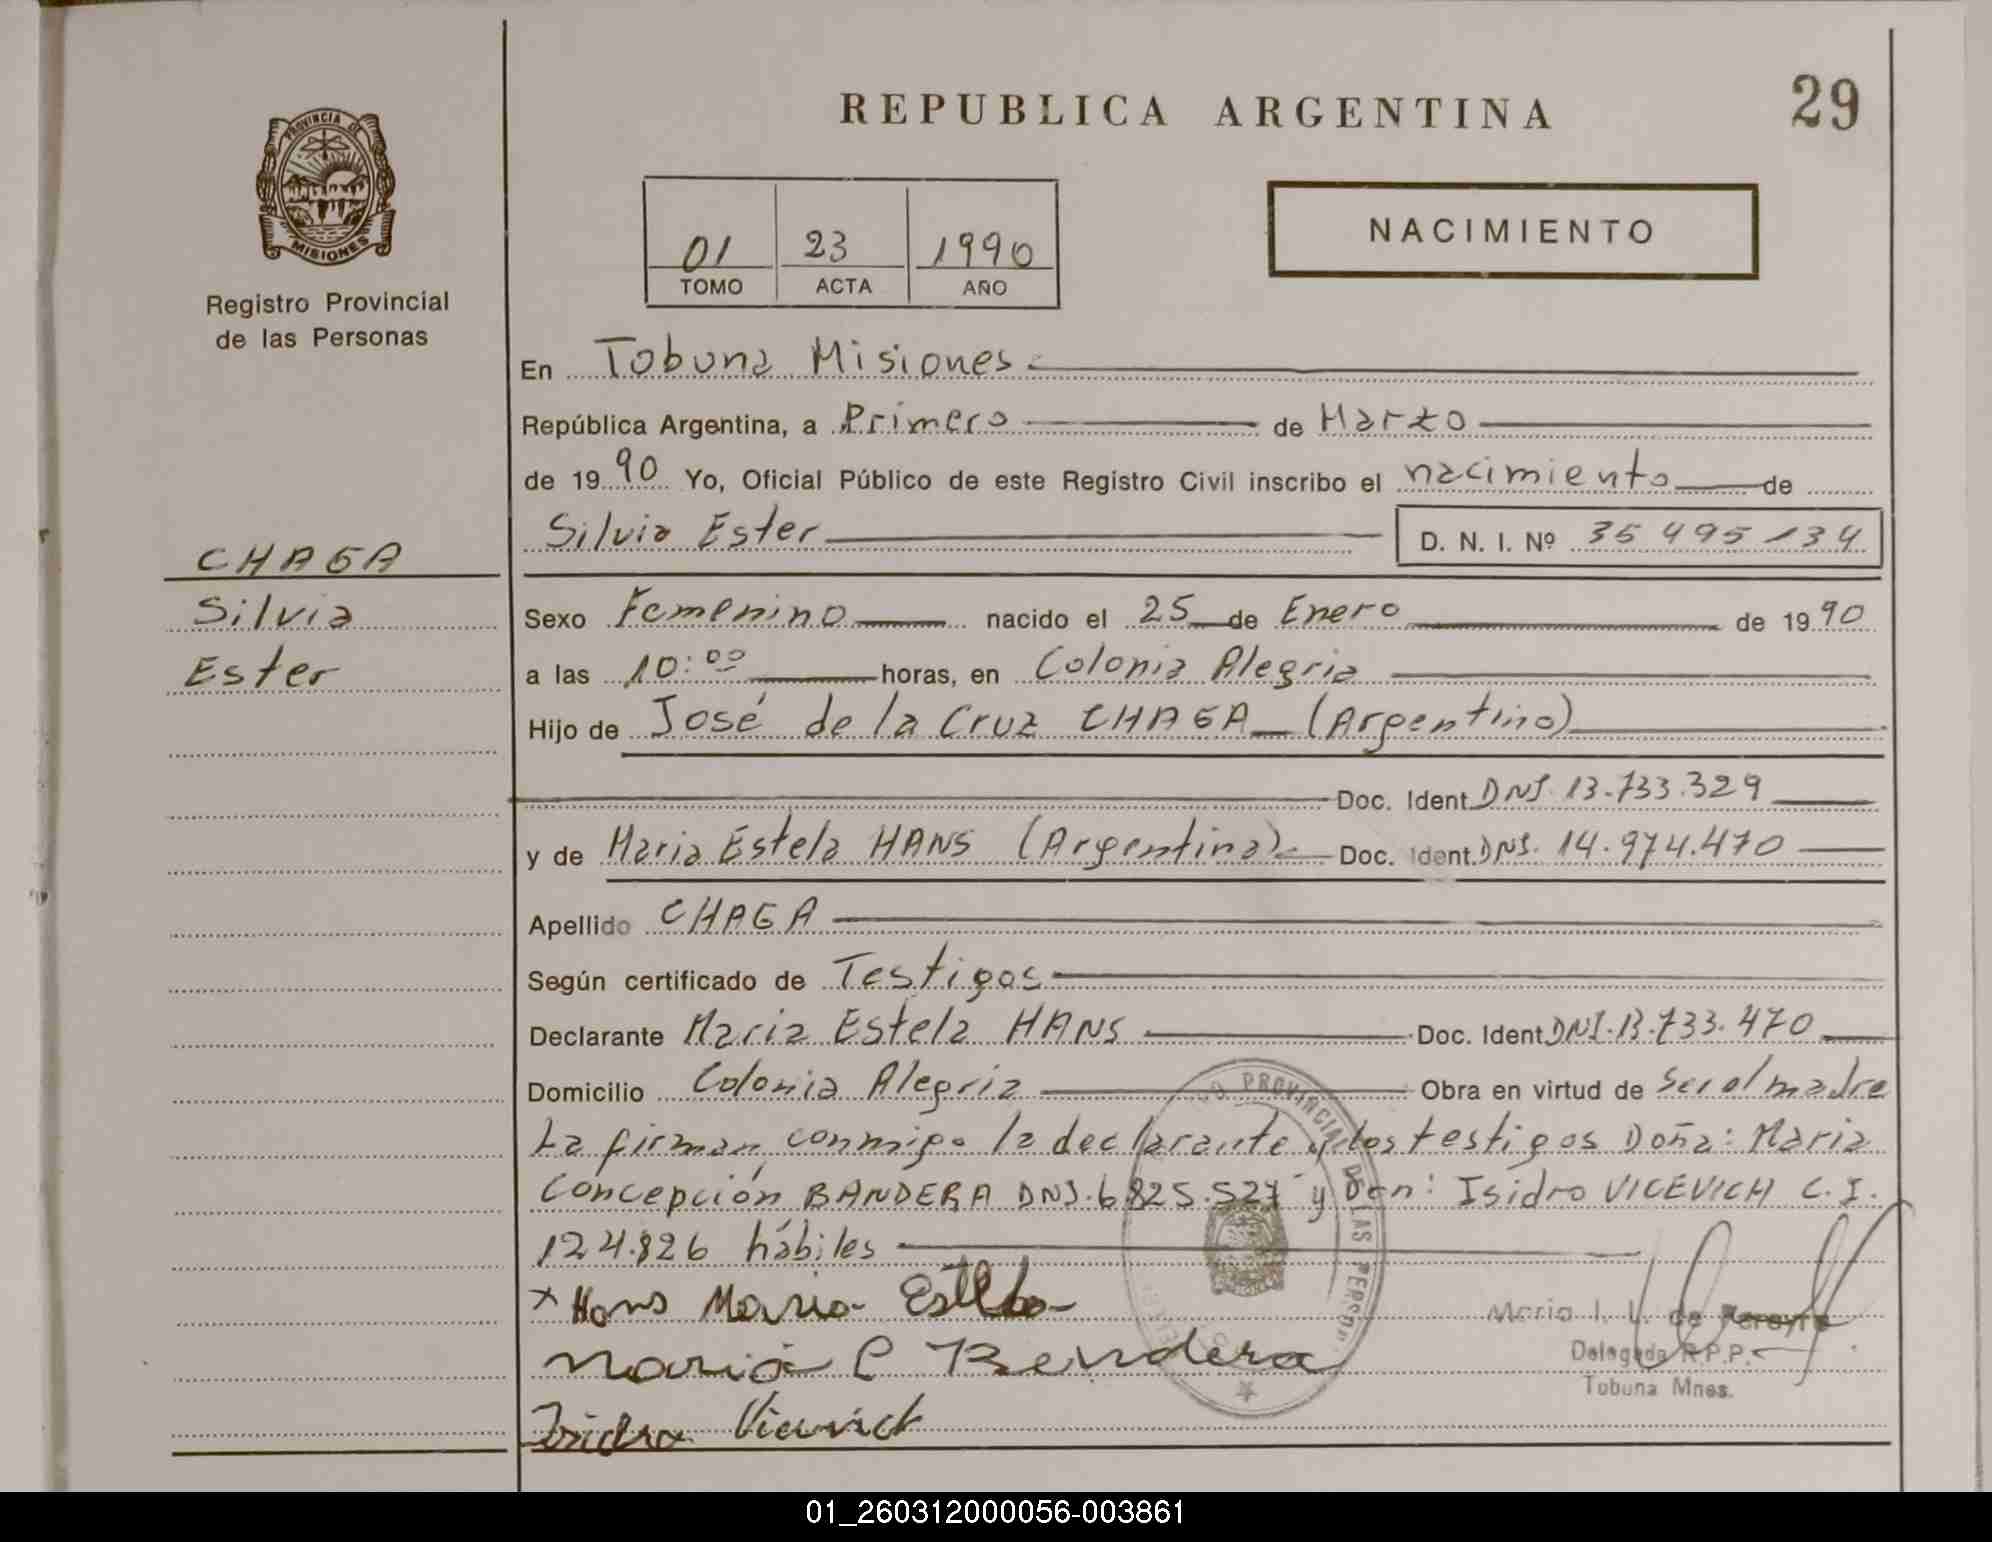 REPUBLICA ARGENTINA
29
PROVINCIA DE MISIONES
Registro Provincial
de las Personas
01 23 1990
TOMO ACTA AÑO
NACIMIENTO
En Tobuna Misiones
República Argentina, a Primero de Marzo
de 1990 Yo, Oficial Público de este Registro Civil inscribo el nacimiento de
Silvia Ester D. N. I. Nº 35 495 134
CHAGA
Silvia
Ester
Sexo Femenino nacido el 25 de Enero de 1990
a las 10:00 horas, en Colonia Alegria
Hijo de José de la Cruz CHAGA (Argentino)
Doc. Ident. DNI 13.733.329
y de Maria Estela HANS (Argentina) Doc. Ident. DNI. 14.974.470
Apellido CHAGA
Según certificado de Testigos
Declarante Maria Estela HANS Doc. Ident DNI.13.733.470
Domicilio Colonia Alegria Obra en virtud de ser el madre
La firman conmigo la declarante y los testigos Doña: Maria
Concepción BANDERA DNI.6.825.527 y Don: Isidro VICEVICH C.I.
124.826 hábiles
x Hans Maria Estela
Maria C Bendera
Isidro Vicevich
PROVINCIAL DE LAS PERSON
Maria I. L. de Pereyra
Delegada R.P.P.
Tobuna Mnes.
01_260312000056-003861